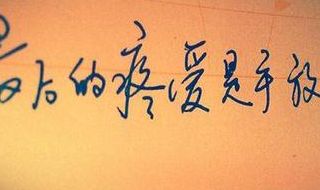 最后的疼爱是手放